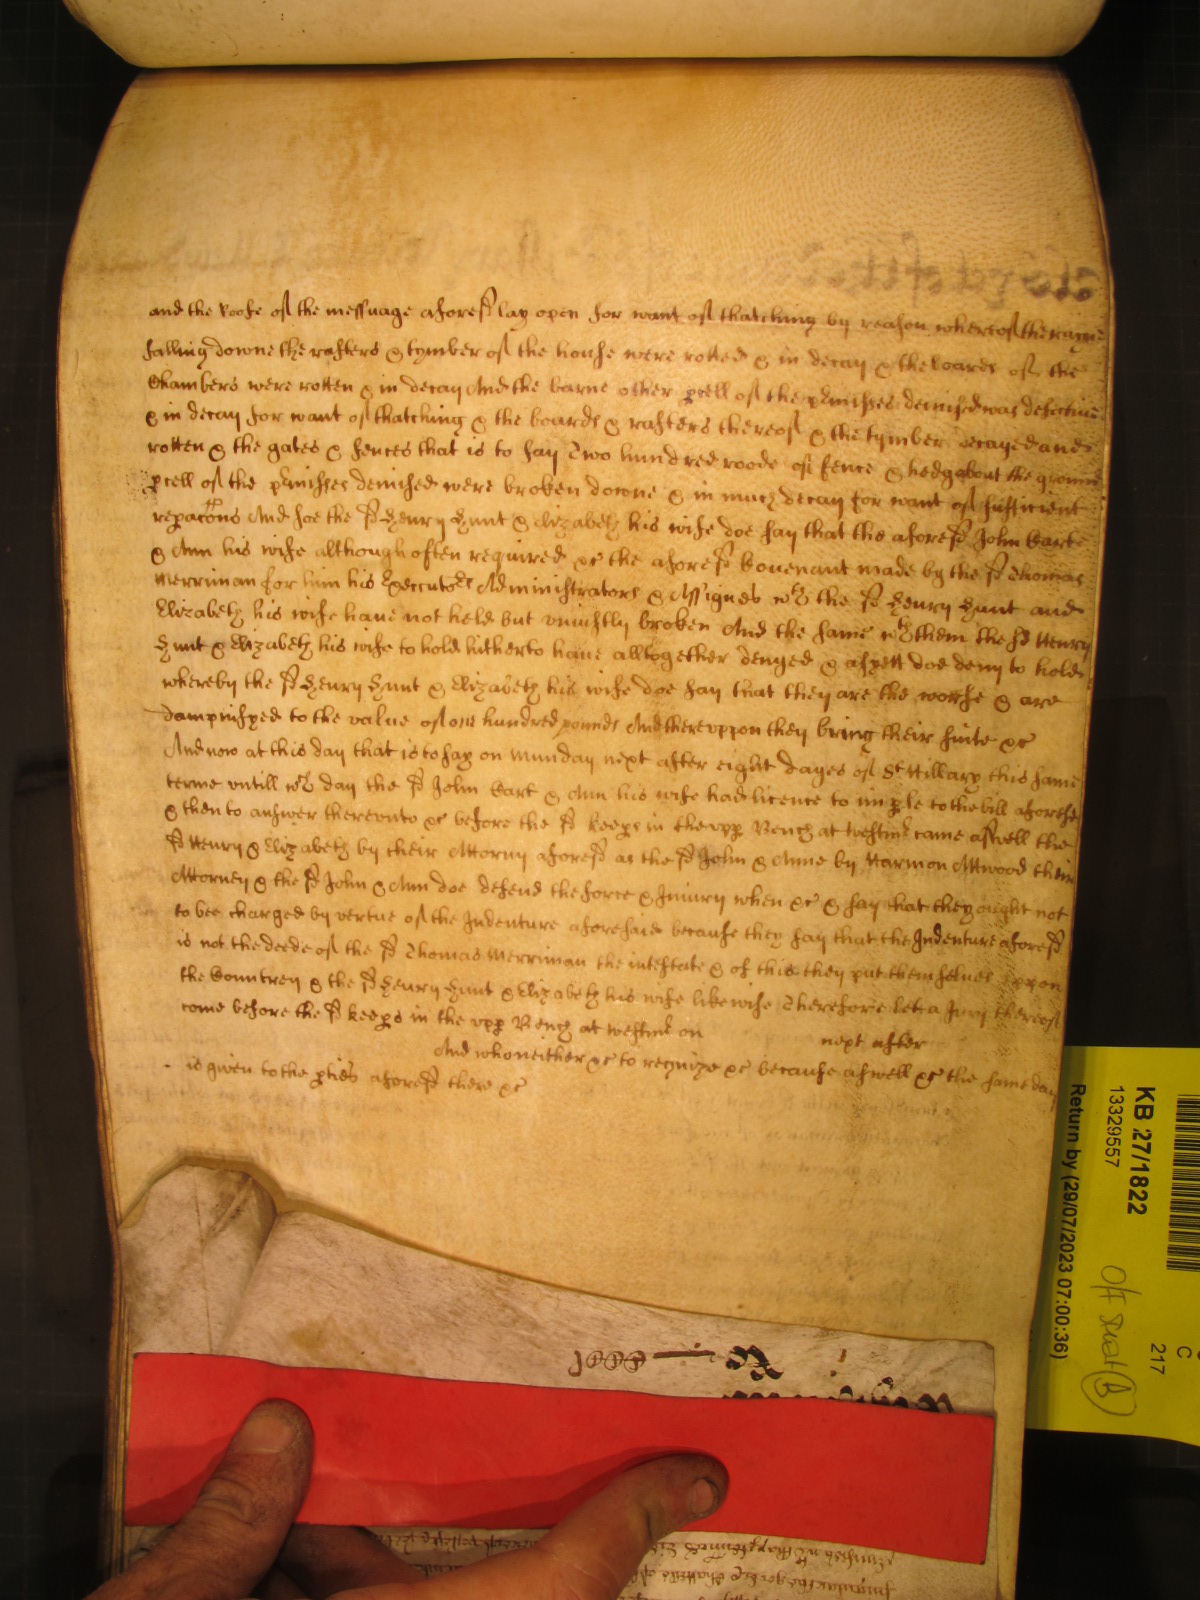 and the Roofe of the messuage aforesd lay open for want of thatching by reason whereof the rayne
falling downe the rafters & tymber of the house were rotted & in decay & the boards of the
Chambers were rotten & in decay And the barne other pcell of the pmisses demised was defective
& in decay for want of thatching & the boards & rafters thereof & the tymber decayed and
rotten & the gates & fences that is to say Two hundred roode of fence & hedg about the ground
pcell of the pmisses demised were broken downe & in much decay for want of sufficient
repacons And soe the sd Henry Hunt & Elizabeth his wife doe say that the aforesd John Cart
& Ann his wife although often required &c the aforesd Covenant made by the sd Thomas
Merriman for him his Executors Administrators & Assignes wth the sd Henry Hunt and
Elizabeth his wife have not held but uniustly broken And the same wth them the sd Henry
Hunt & Elizabeth his wife to hold hitherto have alltogether denyed & as yett doe deny to hold
whereby the sd Henry Hunt & Elizabeth his wife doe say that they are the worse & are
dampnifyed to the value of one hundred pounds And thereuppon they bring their suite &c
And now at this day that is to say on Munday next after eight dayes of St Hillary this same
terme untill wch day the sd John Cart & Ann his wife had licence to imple to the bill aforesd
& then to answer thereunto &c before the sd keeps in the upp Bench at Westmr came aswell the
sd Henry & Elizabeth by their Attorny aforesd as the sd John & Anne by Harmon Attwood their
Attorney & the sd John & Ann doe defend the force & Iniury when &c & say that they ought not
to bee charged by vertue of the Indenture aforesaid because they say that the Indenture aforesd
is not the deede of the sd Thomas Merriman the intestate & of this they put themselves uppon
the Countrey & the sd Henry Hunt & Elizabeth his wife likewise Therefore let a Jury thereof
come before the sd keeps in the upp Bench at Westmr on next after
And who neither &c to recognize &c because aswell &c the same day
is given to the pties aforesd there &c
KB 27/1822
13329557
Return by (29/07/2023 07:00:36)
C
217
B